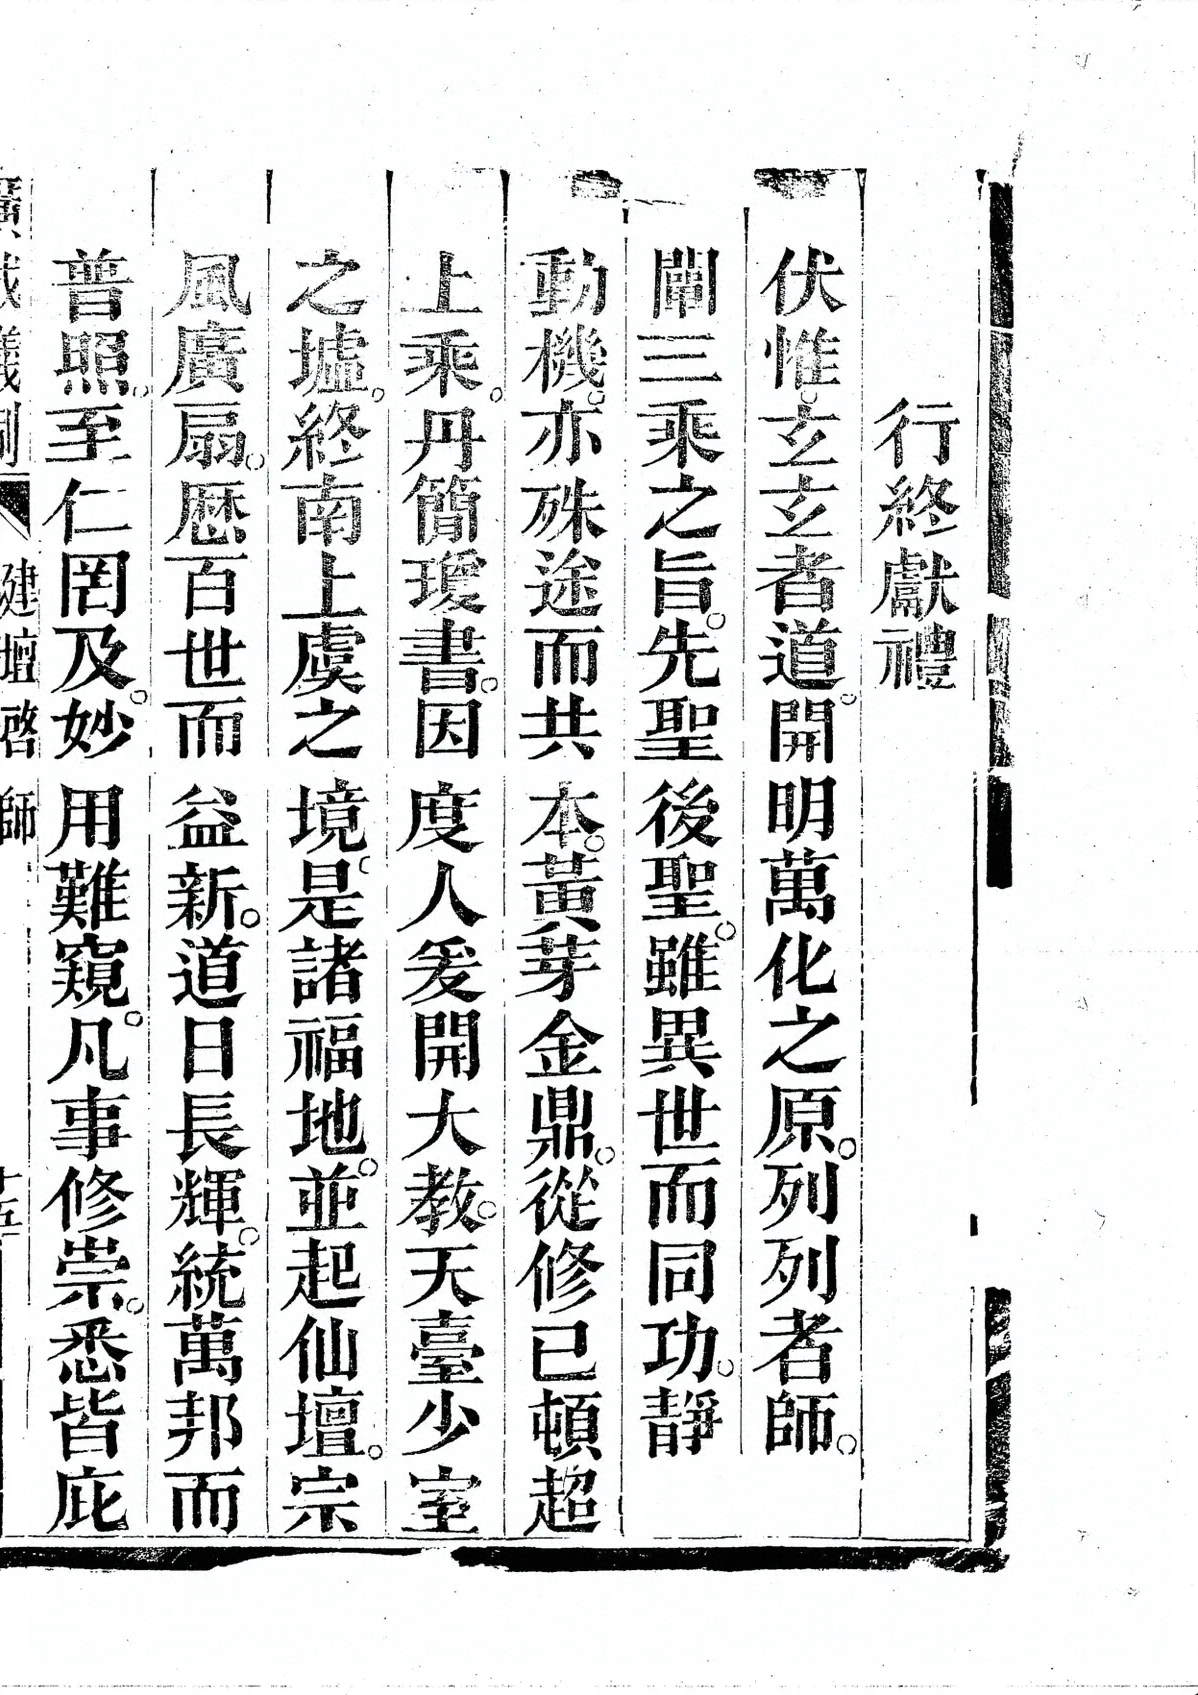 行終獻禮
伏惟。玄玄者道。開明萬化之原。列列者師。
闡三乘之旨。先聖後聖。雖異世而同功。靜
動機。亦殊途而共本。黃芽金鼎。從修已頓超
上乘。丹簡瓊書。因度人爰開大教。天臺少室
之墟。終南上虞之境。是諸福地。並起仙壇。宗
風廣扇。歷百世而益新。道日長輝。統萬邦而
普照。至仁罔及。妙用難窺。凡事修崇。悉皆庇
廣成儀制 建壇啓師 十五